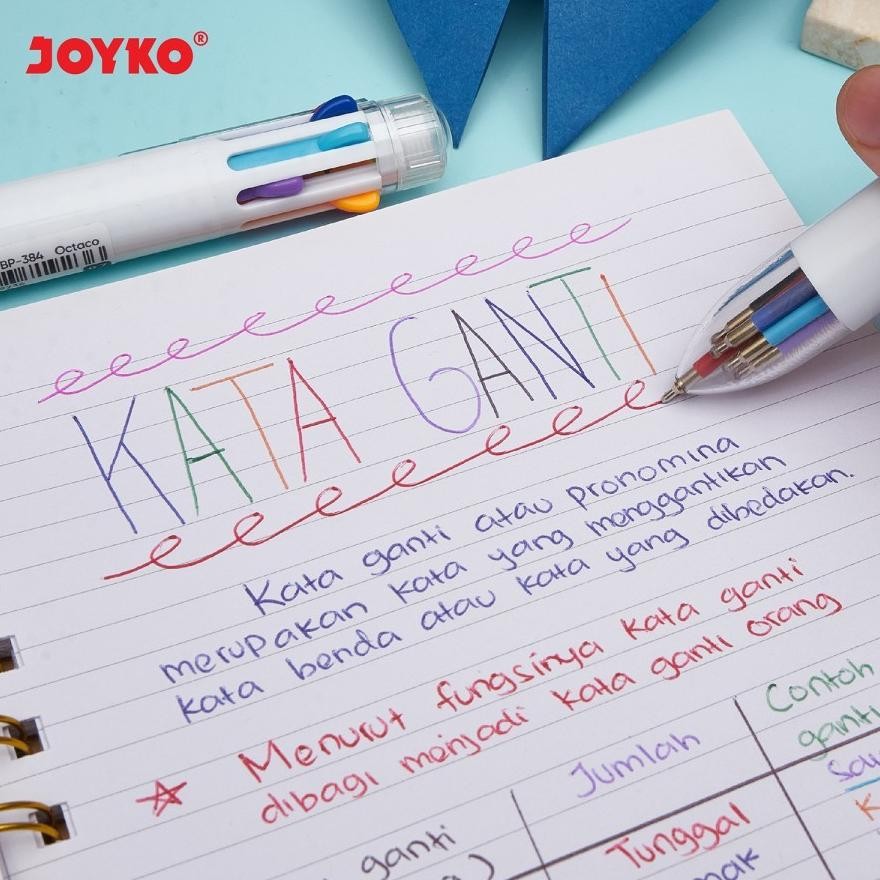 JOYKO®
BP-384 Octaco
KATA GANTI
Kata ganti atau pronomina
merupakan kata yang menggantikan
kata benda atau kata yang dibedakan.
Menurut fungsinya kata ganti
dibagi menjadi kata ganti orang
Contoh
ganti
Jumlah
ganti
Tunggal